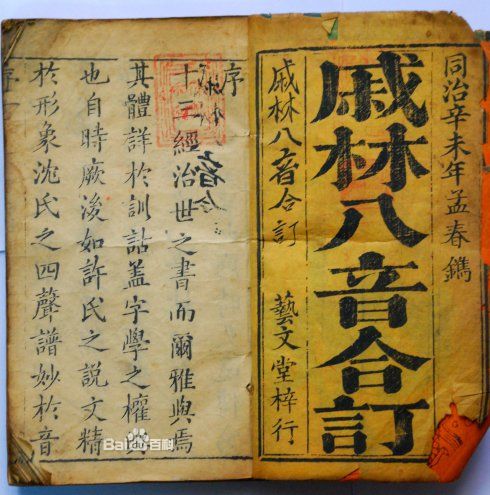 同治辛未年孟春鐫
戚林八音合訂
戚林八音合訂 藝文堂梓行
序
十三經治世之書而爾雅與焉
其體詳於訓詁蓋字學之權輿
也自時厥後如許氏之說文精
於形象沈氏之四聲譜妙於音
序
Baidu百科